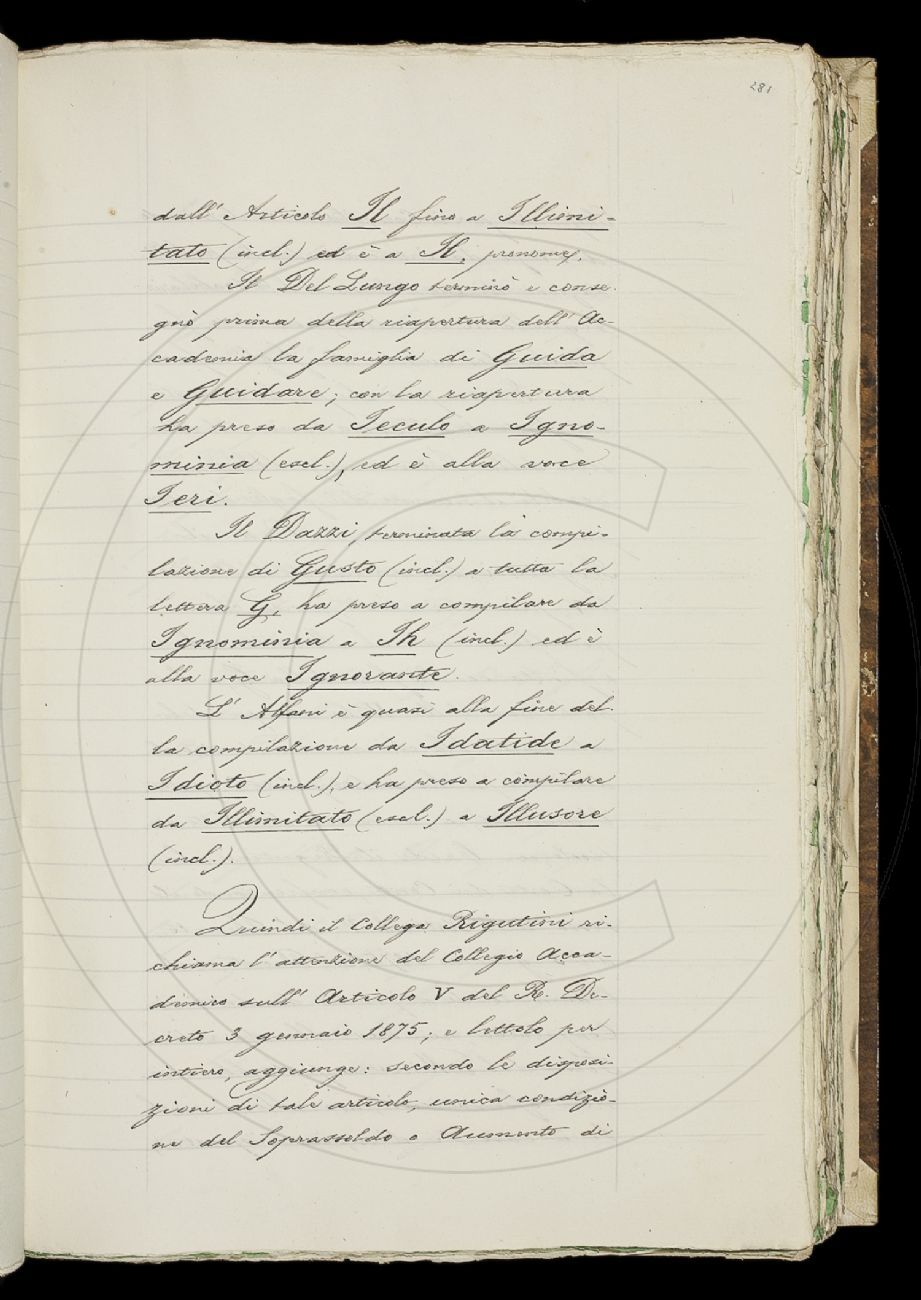 281
dall' Articolo Il fino a Illimi-
tato (incl.) ed è a Il, pronome.
Il Del Lungo terminò e conse-
gnò prima della riapertura dell' Ac-
cademia la famiglia di Guida
e Guidare; con la riapertura
ha preso da Ieculo a Igno-
minia (escl.), ed è alla voce
Ieri.
Il Dazzi, terminata la compi-
lazione di Gusto (incl.) a tutta la
lettera G, ha preso a compilare da
Ignominia a Ih (incl.) ed è
alla voce Ignorante.
L' Alfani è quasi alla fine del-
la compilazione da Idatide a
Idioto (incl.), e ha preso a compilare
da Illimitato (escl.) a Illusore
(incl.).
Quindi il Collega Rigutini ri-
chiama l' attenzione del Collegio Acca-
demico sull' Articolo V del R. De-
creto 3 gennaio 1875; e lettolo per
intiero, aggiunge: secondo le disposi-
zioni di tale articolo, unica condizio-
ne del Soprassoldo o Aumento di